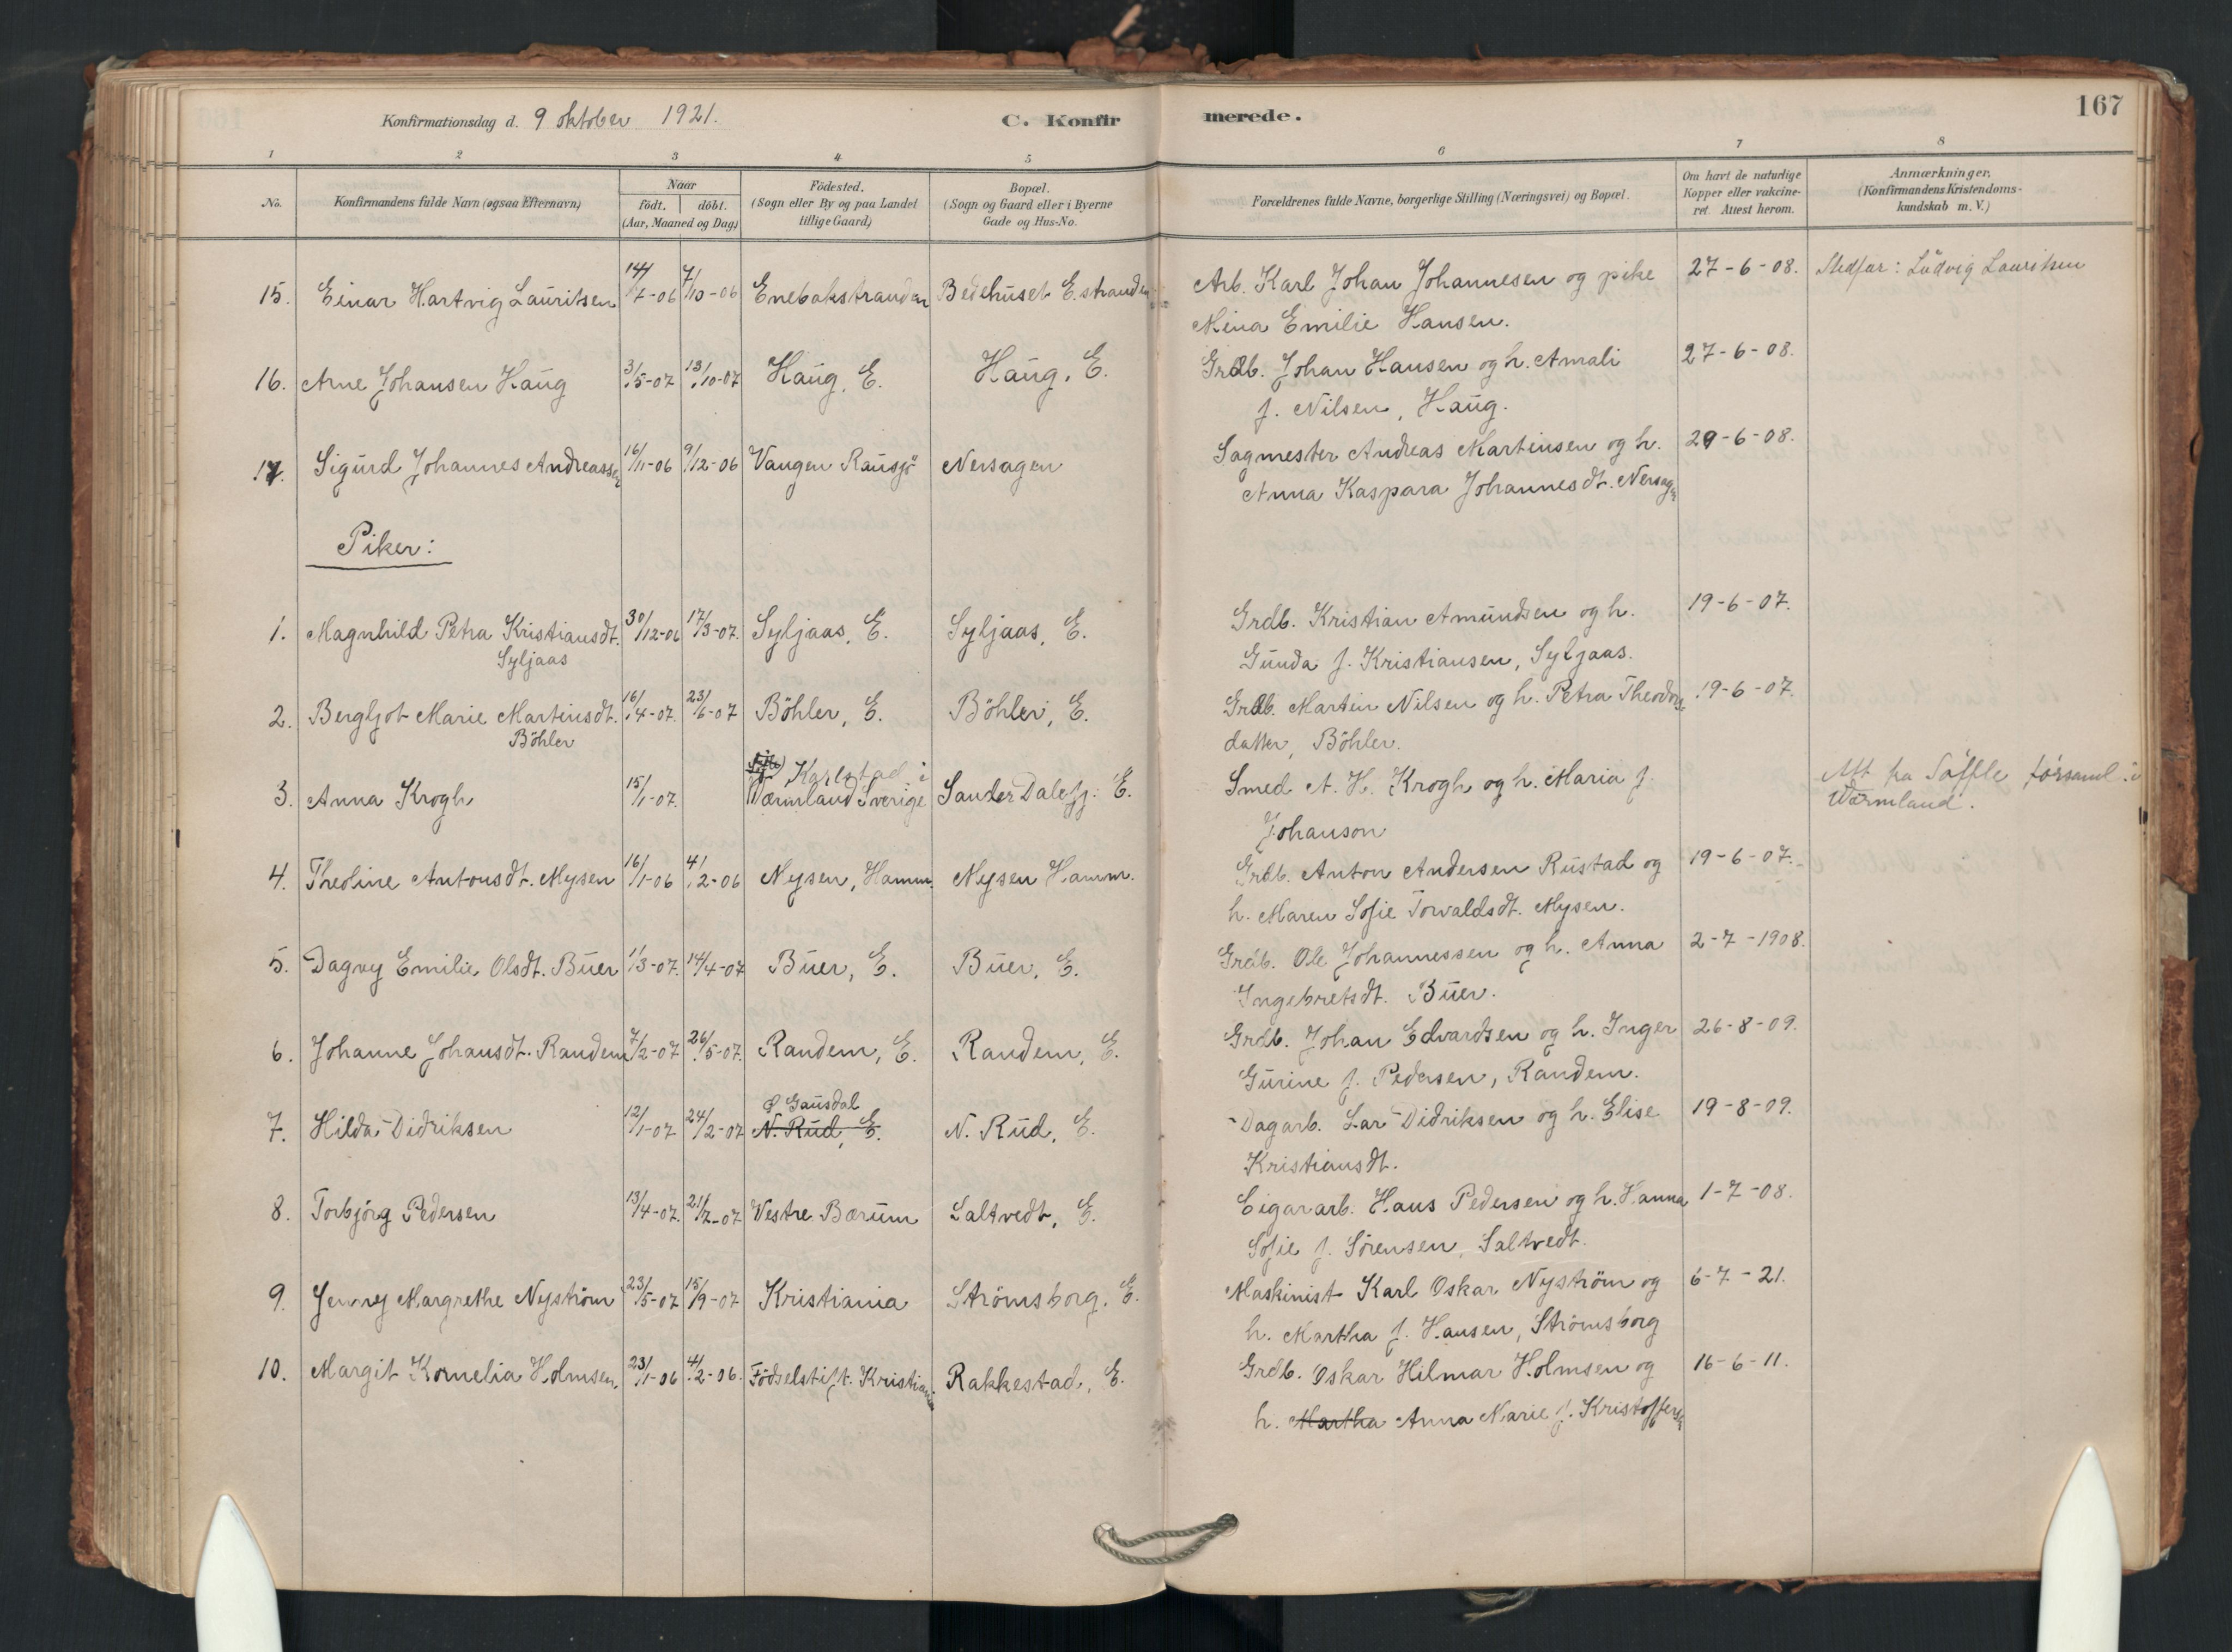 Konfirmationsdag d. 9 oktober 1921. C. Konfirmerede. 167
1 2 3 4 5 6 7 8
No. Konfirmandens fulde Navn (ogsaa Efternavn) Naar født. døbt. (Aar, Maaned og Dag) Fødested. (Sogn eller By og paa Landet tillige Gaard) Bopæl. (Sogn og Gaard eller i Byerne Gade og Hus-No. Forældrenes fulde Navne, borgerlige Stilling (Næringsvei) og Bopæl. Om havt de naturlige Kopper eller vakcineret. Attest herom. Anmærkninger. (Konfirmandens Kristendomskundskab m. V.)
15. Einar Hartvig Lauritsen 14/7-06 7/10-06 Enebakstranden Bedehuset E.stranden Arb. Karl Johan Johannesen og pike 27-6-08. Stedfar: Ludvig Lauritsen
Mina Emilie Hansen.
16. Arne Johansen Haug 3/5-07 13/10-07 Haug, E. Haug, E. Grdb. Johan Hansen og h. Amali 27-6-08.
f. Nilsen, Haug.
17. Sigurd Johannes Andreassen 16/11-06 9/12-06 Vangen Rausjö Nersagen Sagmester Andreas Martinsen og h. 29-6-08.
Anna Kaspara Johannesdt. Nersagen
Piker:
1. Magnhild Petra Kristiansdt. 30/12-06 17/3-07. Syljaas, E. Syljaas, E. Grdb. Kristian Amundsen og h. 19-6-07.
Syljaas Gunda f. Kristiansen, Syljaas.
2. Bergljot Marie Martinsdt. 16/4-07. 23/6-07 Böhler, E. Böhler, E. Grdb. Martin Nilsen og h. Petra Theodors 19-6-07.
Böhler datter, Böhler.
Karlstad i
3. Anna Krogh 15/1-07. Værmland Sverige Sander Dalefj. E. Smed A. H. Krogh og h. Maria f. Att fra Säffle församl. i
Johanson Wärmland.
4. Theoline Antonsdt. Mysen 16/1-06 4/2-06 Nysen, Hamm. Nysen Hamm. Grdb. Anton Andersen Rustad og 19-6-07.
h. Maren Sofie Torvaldsdt. Mysen.
5. Dagny Emilie Olsdt. Buer 1/3-07. 14/4-07 Buer, E. Buer, E. Grdb. Ole Johannessen og h. Anna 2-7-1908.
Ingebretsdt. Buer.
6. Johanne Johansdt. Randem 7/2-07 26/5-07. Randem, E. Randem, E. Grdb. Johan Edvardsen og h. Inger 26-8-09.
Gurine f. Pedersen, Randem.
Ø Gausdal
7. Hilda Didriksen 12/1-07 24/2-07 N. Rud, E. N. Rud, E. Dagarb. Lar Didriksen og h. Elise 19-8-09.
Kristiansdt.
8. Torbjörg Pedersen 13/4-07. 21/7-07 Vestre Bærum Saltvedt, E. Cigararb. Hans Pedersen og h. Hanna 1-7-08.
Sofie f. Sörensen, Saltvedt.
9. Jenny Margrethe Nyström 23/5-07 15/9-07 Kristiania Strömsborg, E. Maskinist Karl Oskar Nyström og 6-7-21.
h. Martha f. Hansen, Strömsborg
10. Margit Kornelia Holmsen, 23/1-06 4/2-06. Födselstift. Kristiania Rakkestad, E. Grdb. Oskar Hilmar Holmsen og 16-6-11.
h. Martha Anna Marie f. Kristoffersen